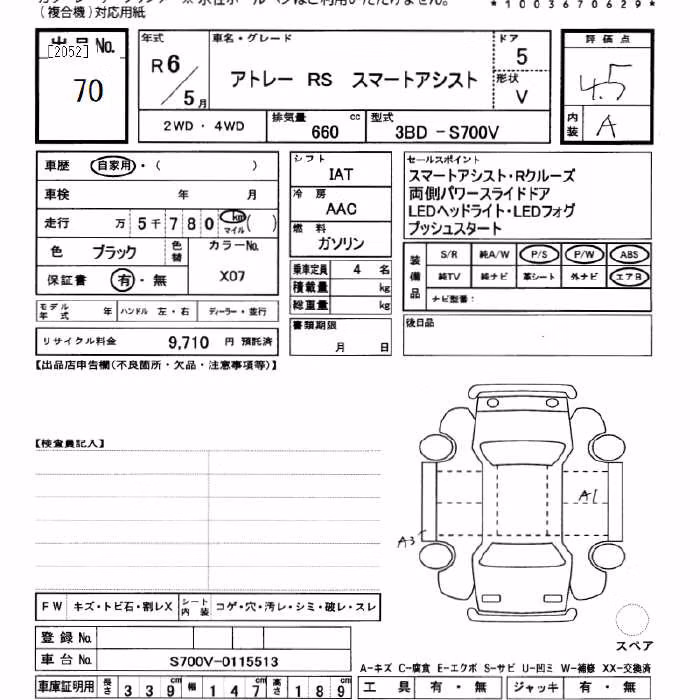 (複合機)対応用紙
*1003670629*
出品No.
[2052]
70
年式
R6/5月
車名・グレード
アトレー RS スマートアシスト
ドア
5
形状
V
評価点
4.5
内装
A
2WD・4WD
排気量 660 cc
型式 3BD-S700V
車歴 自家用・( )
車検 年 月
走行 万5千780 km マイル ( )
色 ブラック 色替
カラーNo.
X07
保証書 有・無
モデル年式 年 ハンドル 左・右 ディーラー・並行
リサイクル料金 9,710 円 預託済
シフト
IAT
冷房
AAC
燃料
ガソリン
乗車定員 4 名
積載量 kg
総重量 kg
書類期限
月 日
セールスポイント
スマートアシスト・Rクルーズ
両側パワースライドドア
LEDヘッドライト・LEDフォグ
プッシュスタート
装備品
S/R 純A/W P/S P/W ABS
純TV 純ナビ 革シート 外ナビ エアB
ナビ型番:
後日品
【出品店申告欄(不良箇所・欠品・注意事項等)】
【検査員記入】
A1
A3
FW キズ・トビ石・割レX シート内装 コゲ・穴・汚レ・シミ・破レ・スレ
スペア
登録No.
車台No. S700V-0115513
A-キズ C-腐食 E-エクボ S-サビ U-凹ミ W-補修 XX-交換済
車庫証明用 長さ 339cm 幅 147cm 高さ 189cm
工具 有・無 ジャッキ 有・無